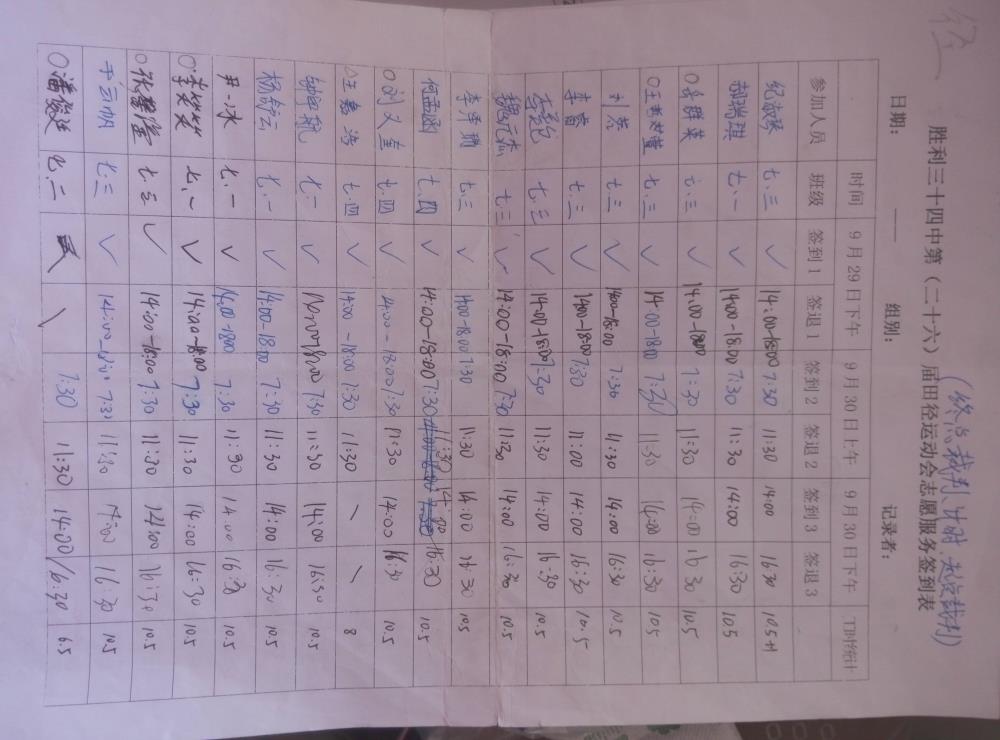 胜利三十四中第（二十六）届田径运动会志愿服务签到表
（终点裁判 计时 裁判）
日期： 组别： 记录者：
时间 9月29日下午 9月30日上午 9月30日下午 工时统计
参加人员 班级 签到1 签退1 签到2 签退2 签到3 签退3
纪敏琴 七.三 ✓ 14:00-18:00 7:30 11:30 14:00 16:30 10.5+1
郝瑞琪 七.一 ✓ 14:00-18:00 7:30 11:30 14:00 16:30 10.5
七.三 ✓ 14:00-18:00 7:30 11:30 14:00 16:30 10.5
七.三 ✓ 14:00-18:00 7:30 11:30 14:00 16:30 10.5
七.三 ✓ 14:00-18:00 7:30 11:30 14:00 16:30 10.5
李睿 七.三 ✓ 14:00-18:00 7:30 11:00 14:00 16:30 10.5
七.三 ✓ 14:00-18:00 7:30 11:30 14:00 16:30 10.5
魏元杰 七.三 ✓ 14:00-18:00 7:30 11:30 14:00 16:30 10.5
七.三 ✓ 14:00-18:00 7:30 11:30 14:00 16:30 10.5
何孟函 七.四 ✓ 14:00-18:00 7:30 11:30 14:00 16:30 10.5
○刘文奎 七.四 ✓ 14:00-18:00 7:30 11:30 14:00 16:30 10.5
○王嘉浩 七.四 ✓ 14:00-18:00 7:30 11:30 \ \ 8
七.一 ✓ 14:00-18:00 7:30 11:30 14:00 16:30 10.5
七.一 ✓ 14:00-18:00 7:30 11:30 14:00 16:30 10.5
尹一冰 七.一 ✓ 14:00-18:00 7:30 11:30 14:00 16:30 10.5
七.一 ✓ 14:00-18:00 7:30 11:30 14:00 16:30 10.5
七.三 ✓ 14:00-18:00 7:30 11:30 14:00 16:30 10.5
于云帆 七.三 ✓ 14:00-18:00 7:30 11:30 14:00 16:30 10.5
七.二 \ 7:30 11:30 14:00 16:30 6.5